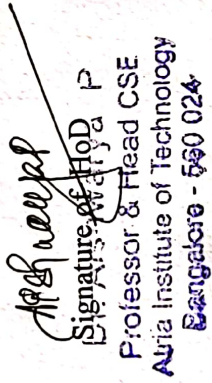 Signature of HoD
Professor & Head CSE
Atria Institute of Technology
Bangalore - 560 024.